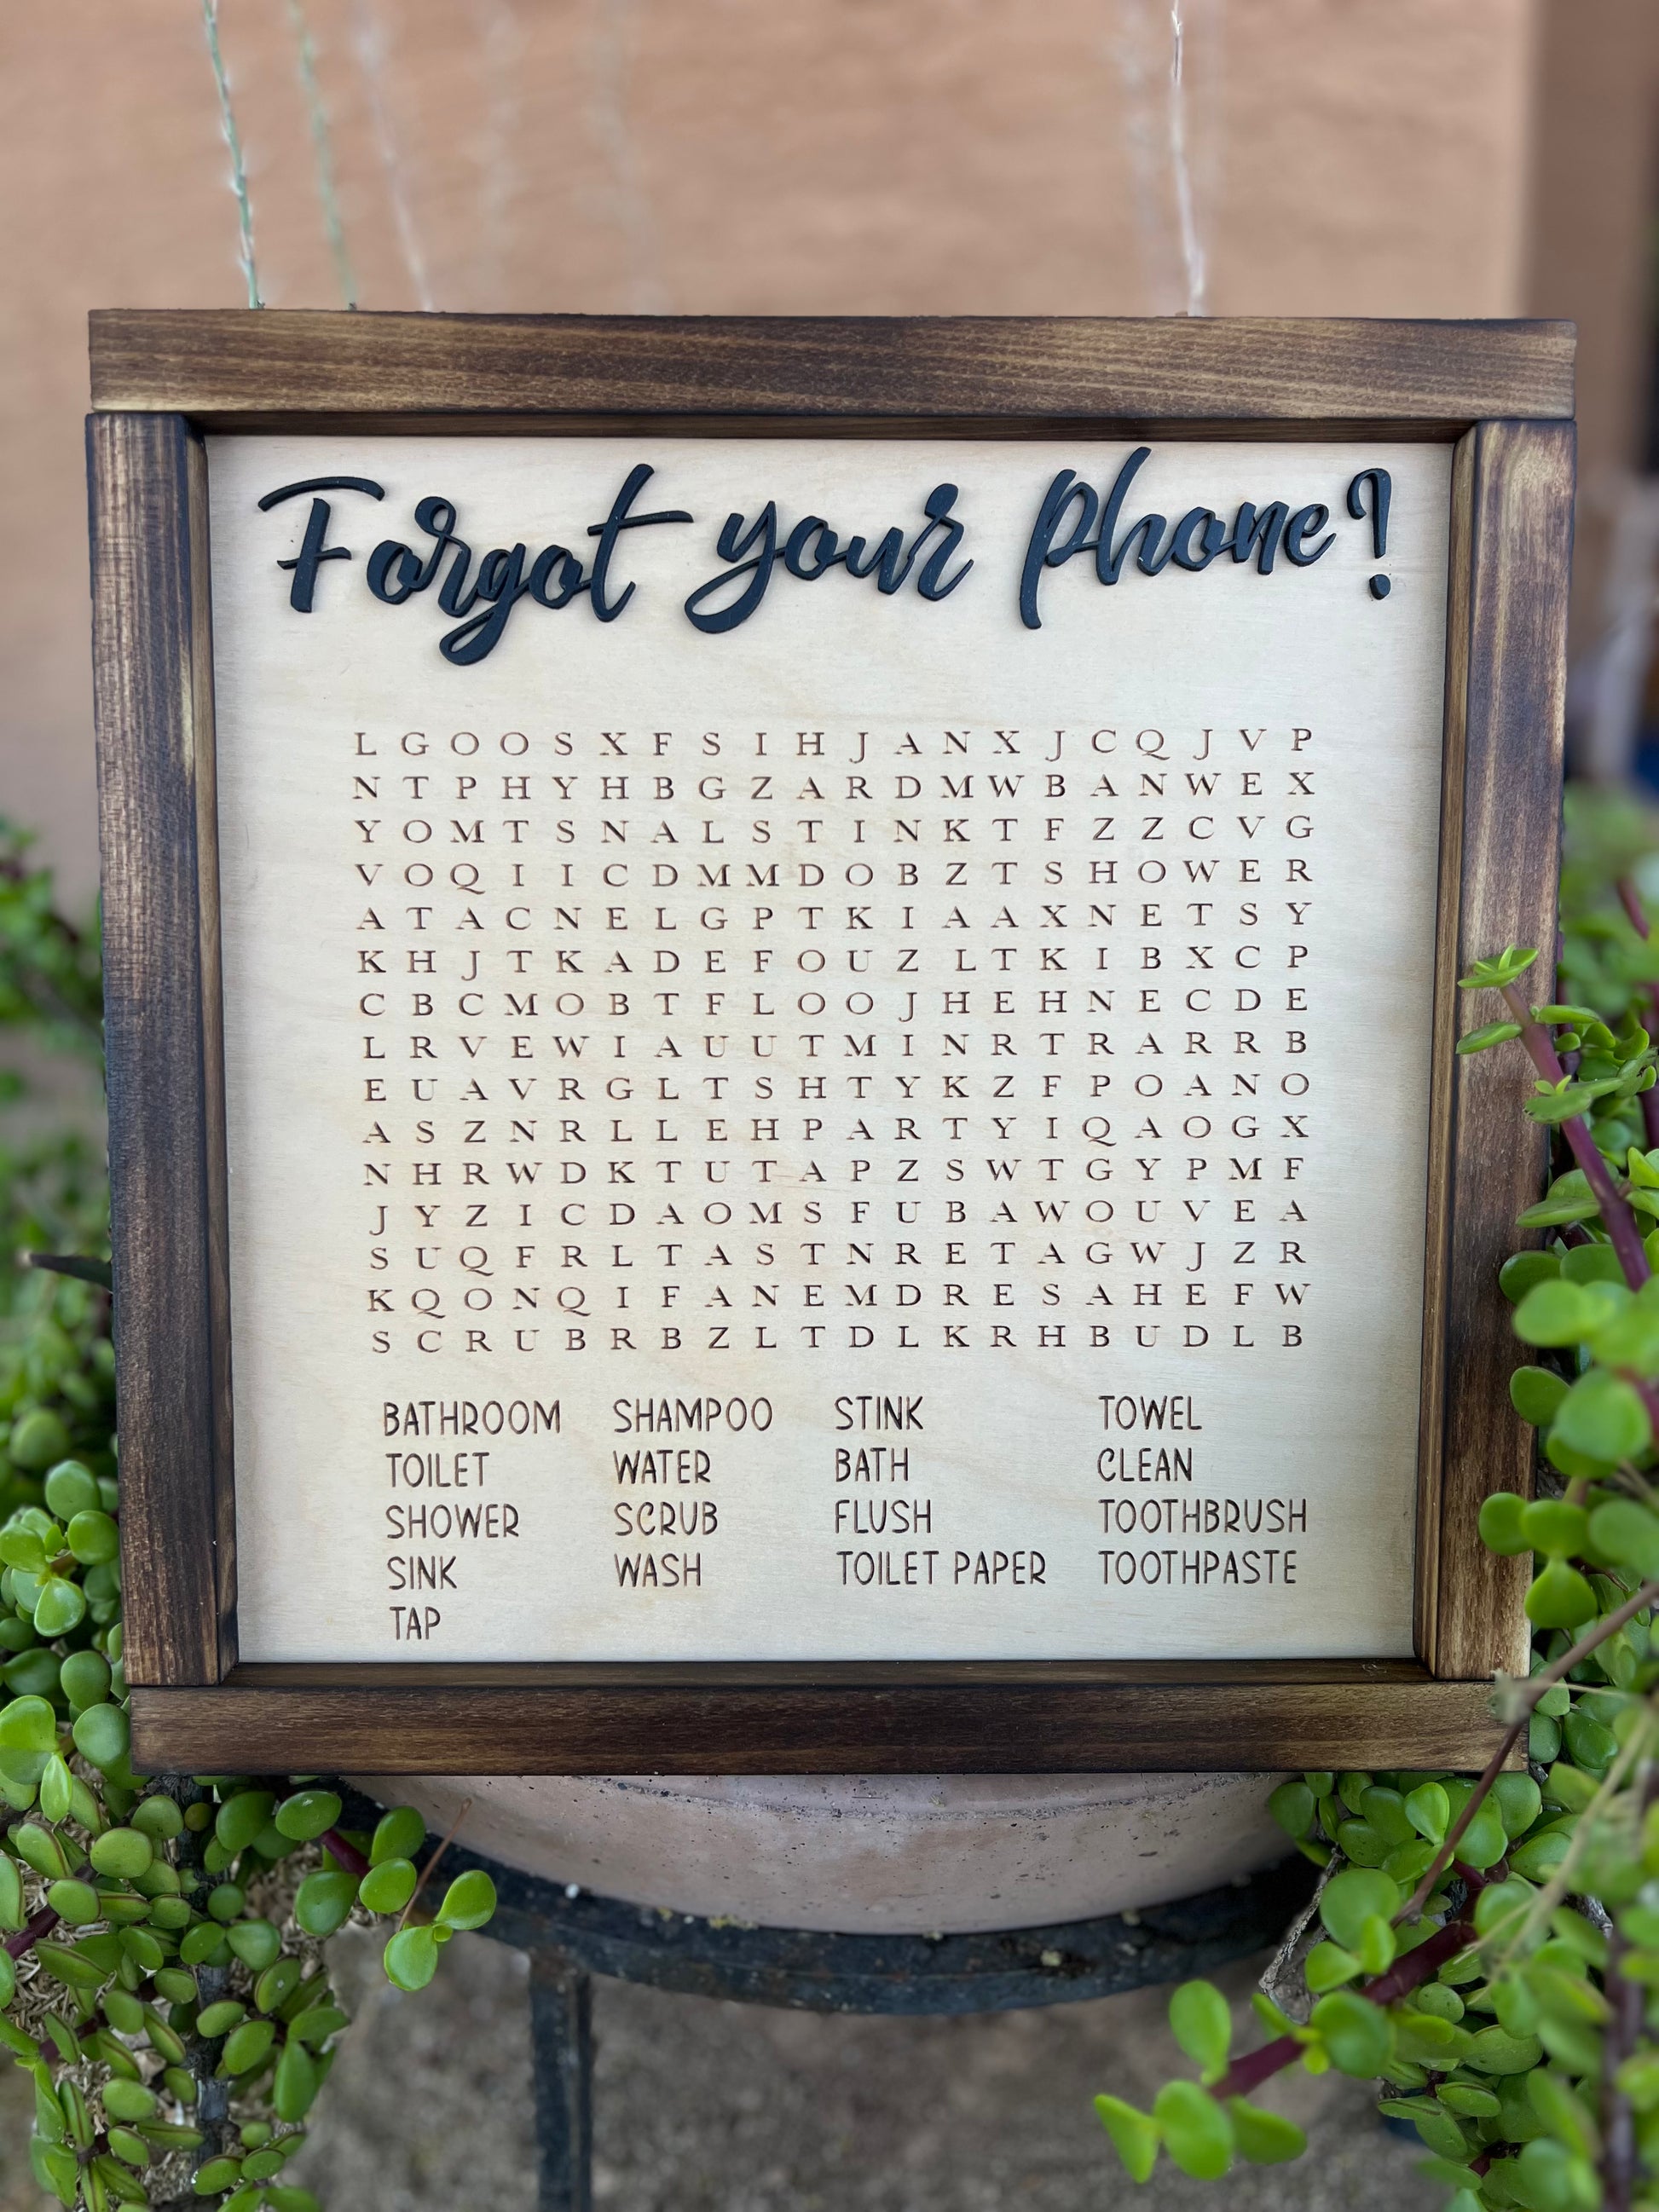 Forgot your phone?
L G O O S X F S I H J A N X J C Q J V P
N T P H Y H B G Z A R D M W B A N W E X
Y O M T S N A L S T I N K T F Z Z C V G
V O Q I I C D M M D O B Z T S H O W E R
A T A C N E L G P T K I A A X N E T S Y
K H J T K A D E F O U Z L T K I B X C P
C B C M O B T F L O O J H E H N E C D E
L R V E W I A U U T M I N R T R A R R B
E U A V R G L T S H T Y K Z F P O A N O
A S Z N R L L E H P A R T Y I Q A O G X
N H R W D K T U T A P Z S W T G Y P M F
J Y Z I C D A O M S F U B A W O U V E A
S U Q F R L T A S T N R E T A G W J Z R
K Q O N Q I F A N E M D R E S A H E F W
S C R U B R B Z L T D L K R H B U D L B
BATHROOM SHAMPOO STINK TOWEL
TOILET WATER BATH CLEAN
SHOWER SCRUB FLUSH TOOTHBRUSH
SINK WASH TOILET PAPER TOOTHPASTE
TAP